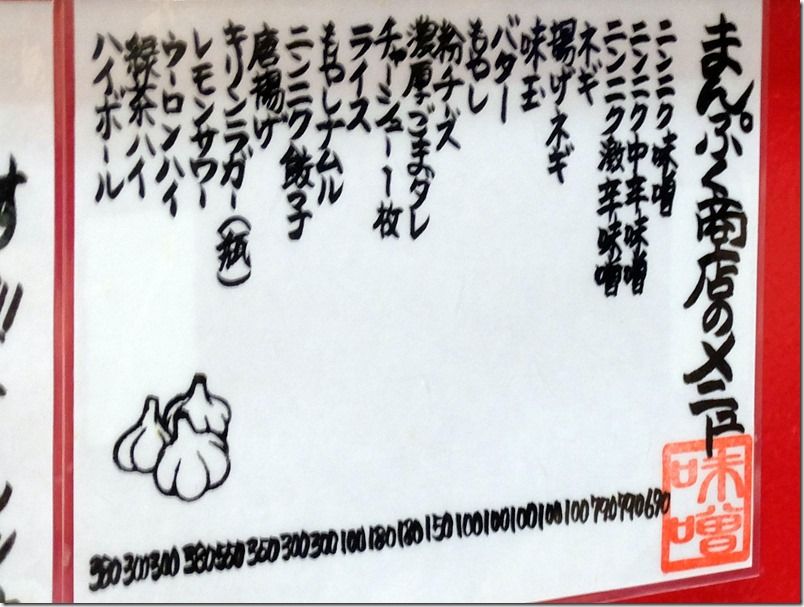 まんぷく商店のメニュー
味噌
ニンニク味噌 690
ニンニク中辛味噌 790
ニンニク激辛味噌 790
ネギ 100
揚げネギ 100
味玉 100
バター 100
もやし 100
粉チーズ 150
濃厚ごまダレ 180
チャーシュー1枚 180
ライス 100
もやしナムル 300
ニンニク餃子 300
唐揚げ 350
キリンラガー(瓶) 550
レモンサワー 380
ウーロンハイ 300
緑茶ハイ 300
ハイボール 350
す!!